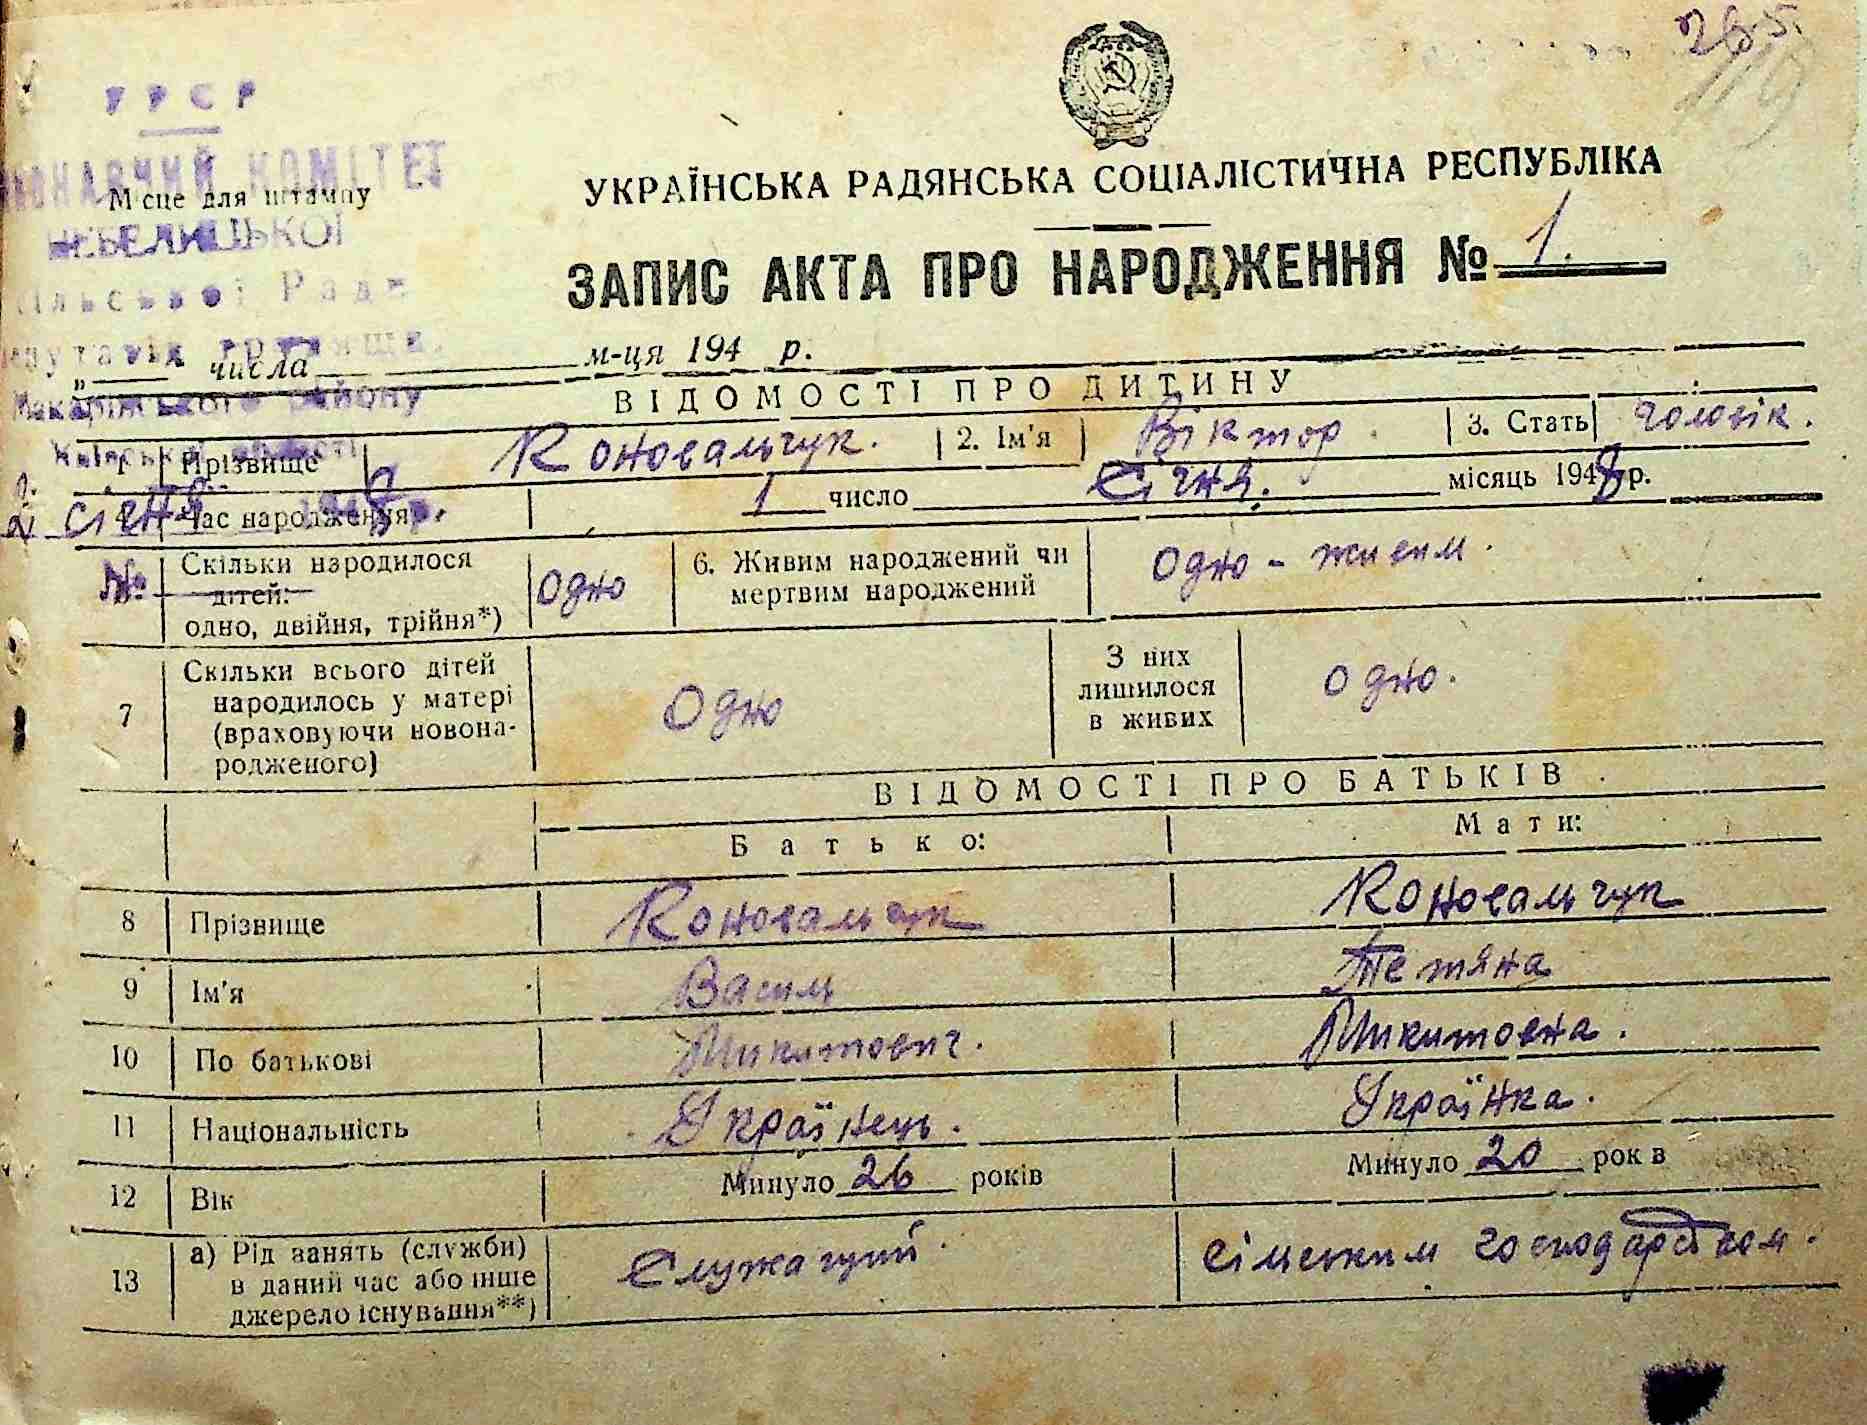 УРСР
КОМІТЕТ
Місце для штампу
НЕБЕЛИЦЬКОЇ
Макарівського району
УКРАЇНСЬКА РАДЯНСЬКА СОЦІАЛІСТИЧНА РЕСПУБЛІКА
ЗАПИС АКТА ПРО НАРОДЖЕННЯ № 1.
„ числа м-ця 194 р.
ВІДОМОСТІ ПРО ДИТИНУ
1 Прізвище Коновальчук. 2. Ім'я Віктор. 3. Стать чоловік.
2 січня 1948 р.
Час народження 1 число Січня. місяць 1948 р.
№ Скільки народилося дітей: одно, двійня, трійня*) Одно 6. Живим народжений чи мертвим народжений Одно - живим.
7 Скільки всього дітей народилось у матері (враховуючи новонародженого) Одно З них лишилося в живих Одно.
ВІДОМОСТІ ПРО БАТЬКІВ
Батько: Мати:
8 Прізвище Коновальчук Коновальчук
9 Ім'я Василь Тетяна
10 По батькові Микитович. Микитовна.
11 Національність Українець. Українка.
12 Вік Минуло 26 років Минуло 20 рок в
13 а) Рід занять (служби) в даний час або інше джерело існування**) Служачий. сільским господарством.